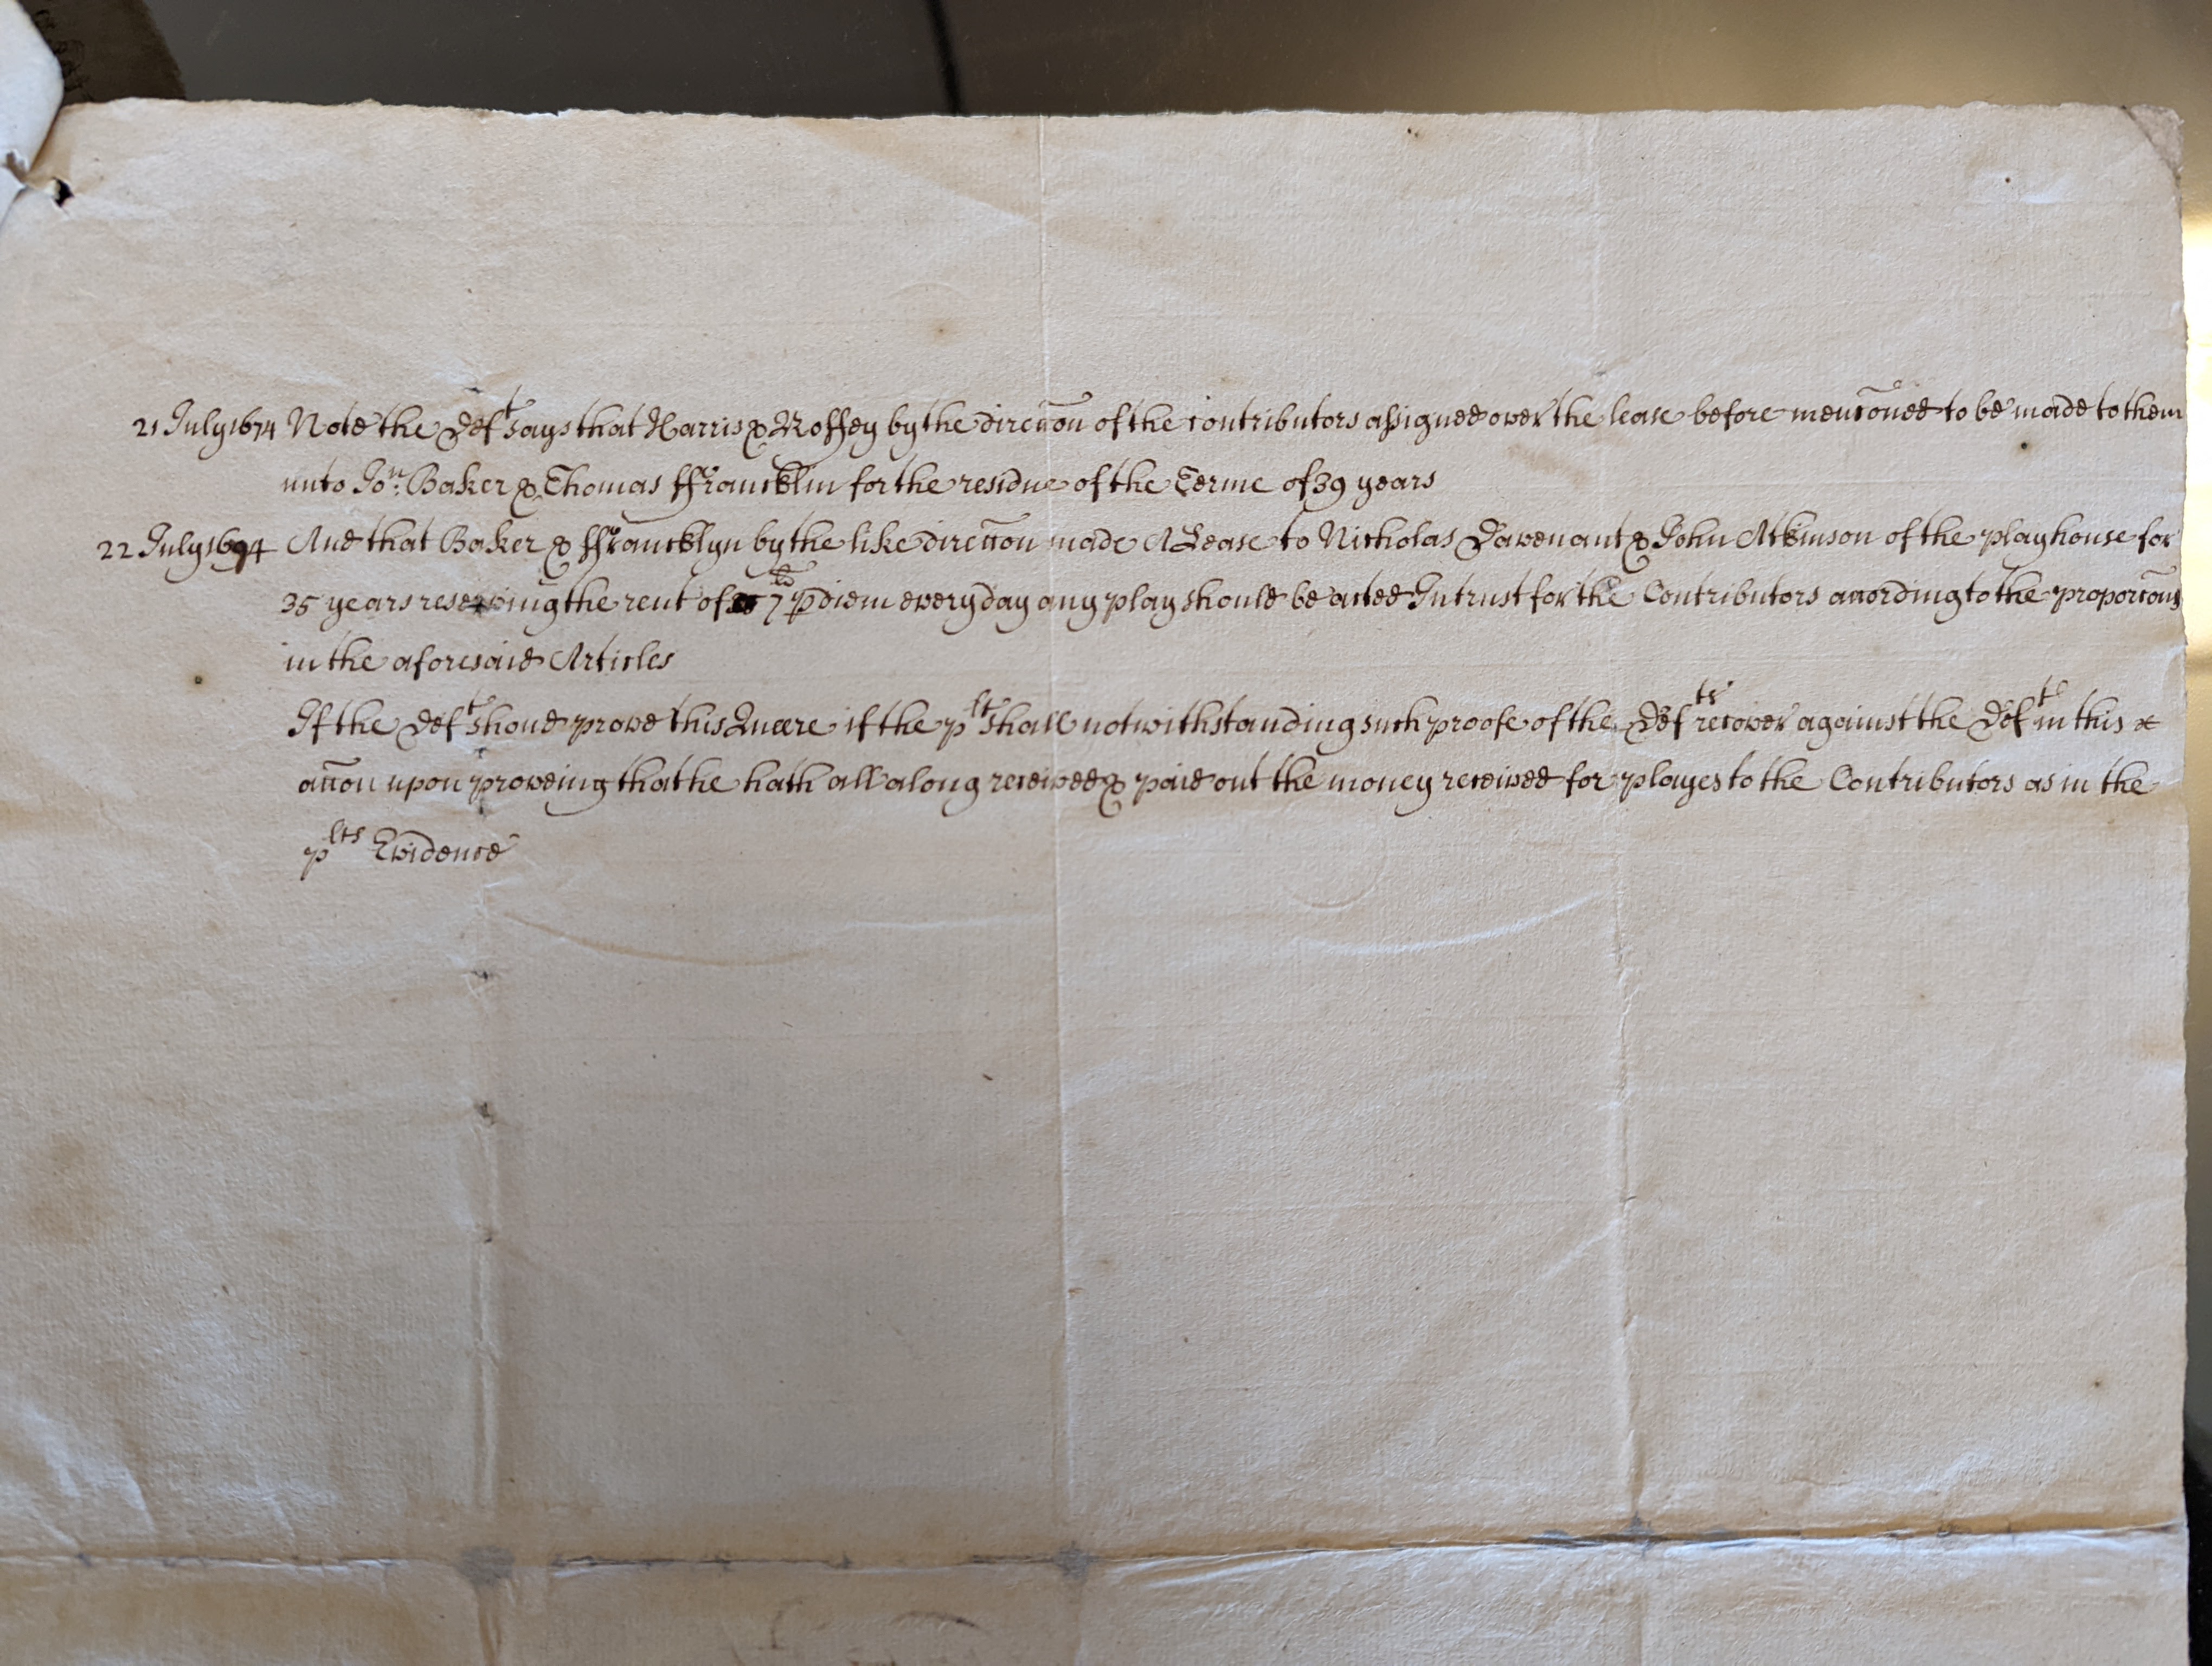 21 July 1674 Note the Def^t says that Harris & Roffey by the direccõn of the contributors assigned over the lease before mencõned to be made to them
unto Jo^n: Baker & Thomas ffrancklin for the residue of the Terme of 39 years
22 July 1674 And that Baker & ffrancklyn by the like direccõn made A Lease to Nicholas Davenant & John Atkinson of the playhouse for
35 years reserving the rent of 7^li p diem every day any play should be acted In trust for the Contributors according to the proporcõns
in the aforesaid Articles
If the Def^t shoud prove this Quære if the p^lt shall notwithstanding such proofe of the Def^ts recover against the Def^t in this
accõn upon proveing that he hath all along received & paid out the money received for playes to the Contributors as in the
p^lts Evidence